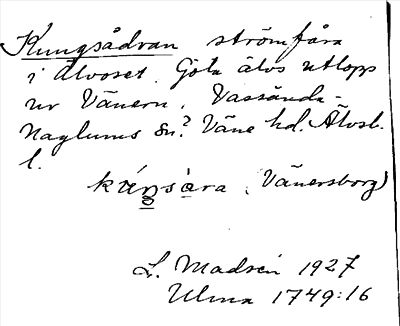 Kungsådran strömfåra
i älvoset. Göta älvs utlopp
ur Vänern. Vassända-
Naglums sn? Väne hd. Älvsb.
l.
(Vänersborg)
L. Madsén 1927
Ulma 1749:16